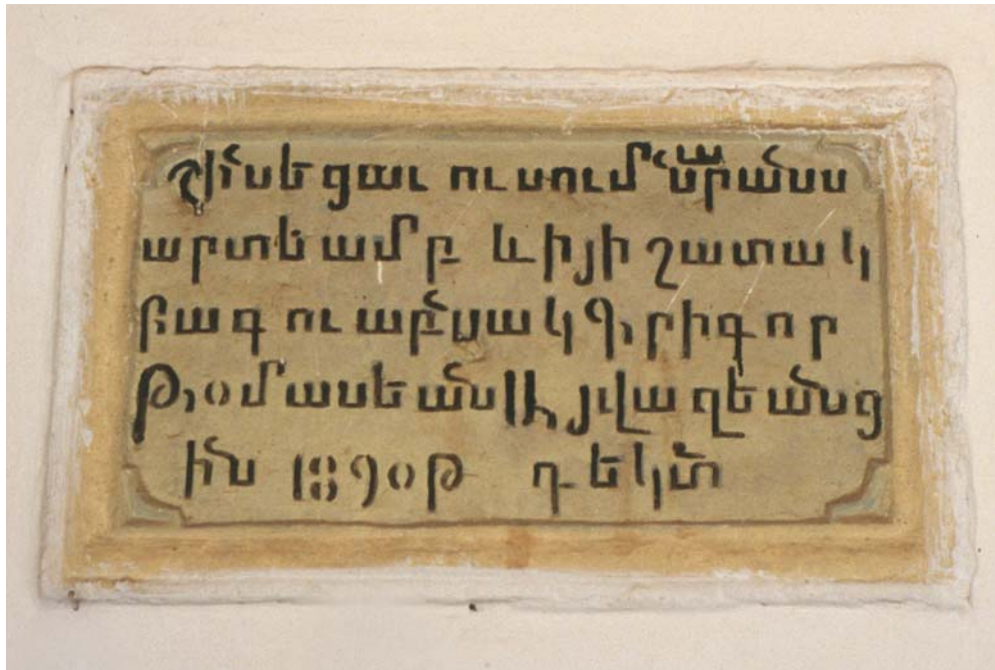 Շինեցաւ ուսումնարանս
արտեամբ և ի յիշատակ
բագուաբնակ Գրիգոր
Թօմասեան Այվազեանց
ին 1890 թ դեկտ